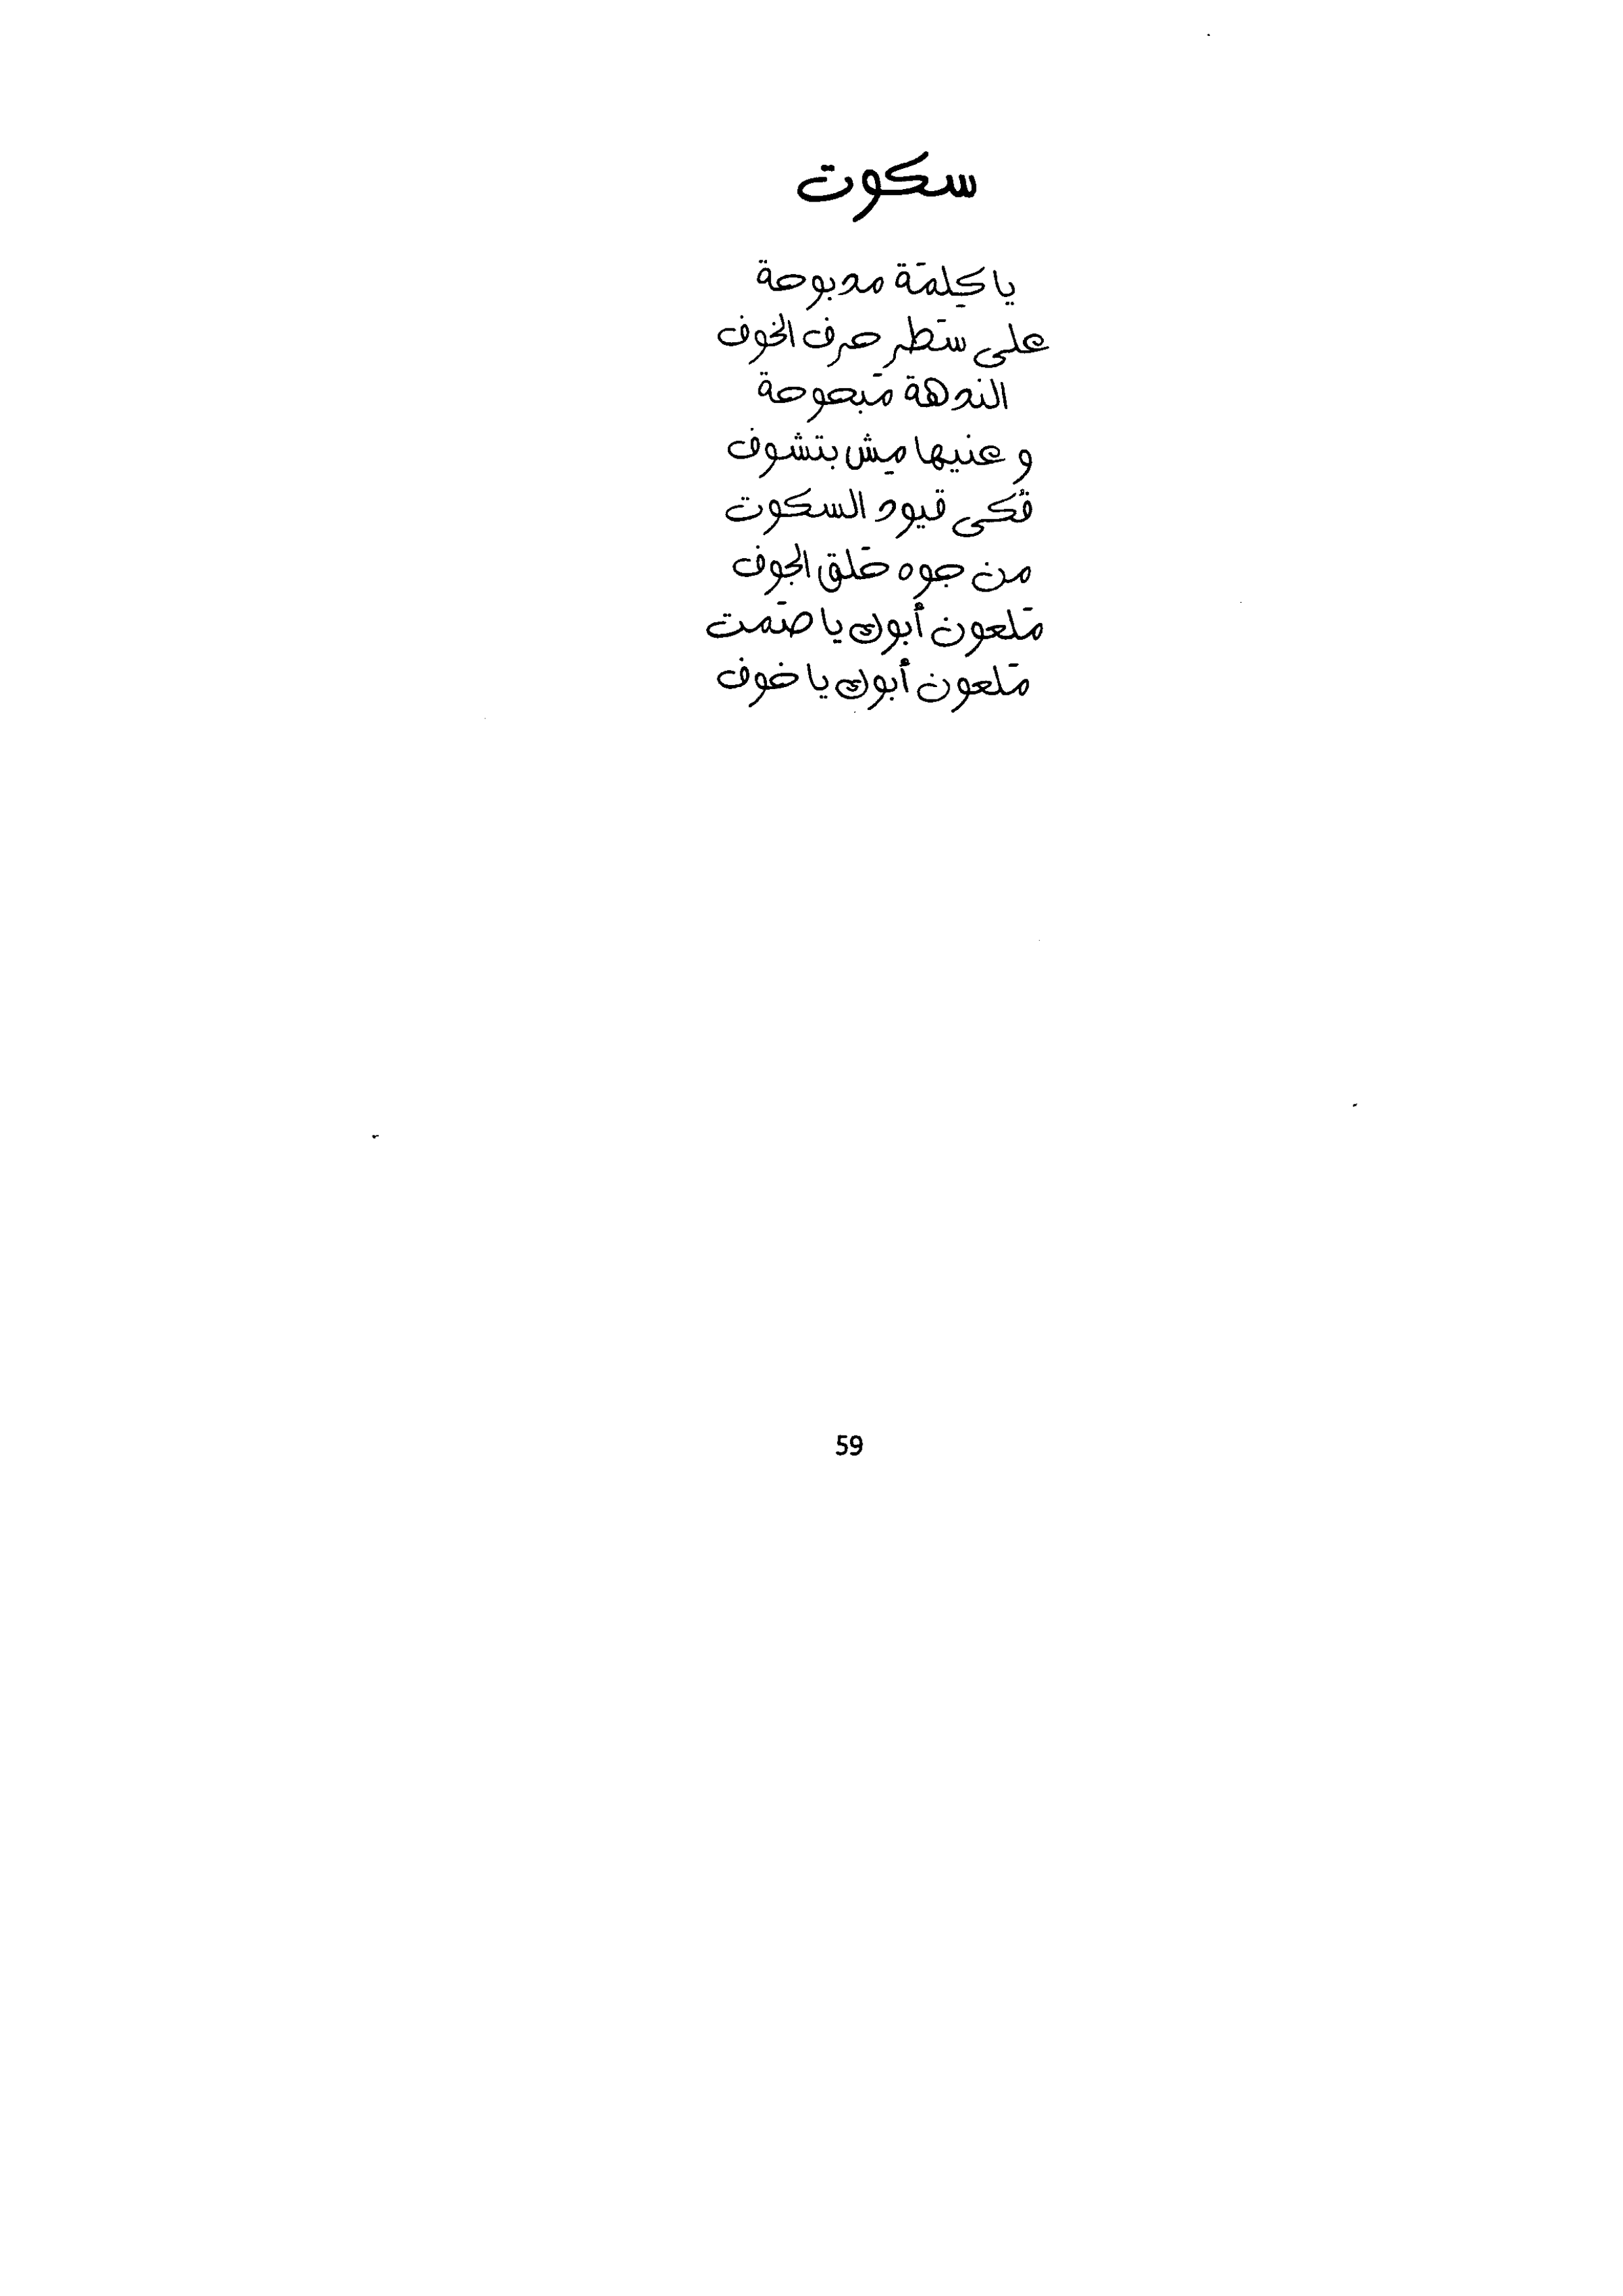 سكوت
يا كِلمَة مدبوحة
على سَطر حرف الخوف
الندهة مَبحوحة
و عنيها مِش بتشوف
فُكى قيود السكوت
من جوه حَلق الجوف
مَلعون أبوك يا صَمت
مَلعون أبوك يا خوف
59